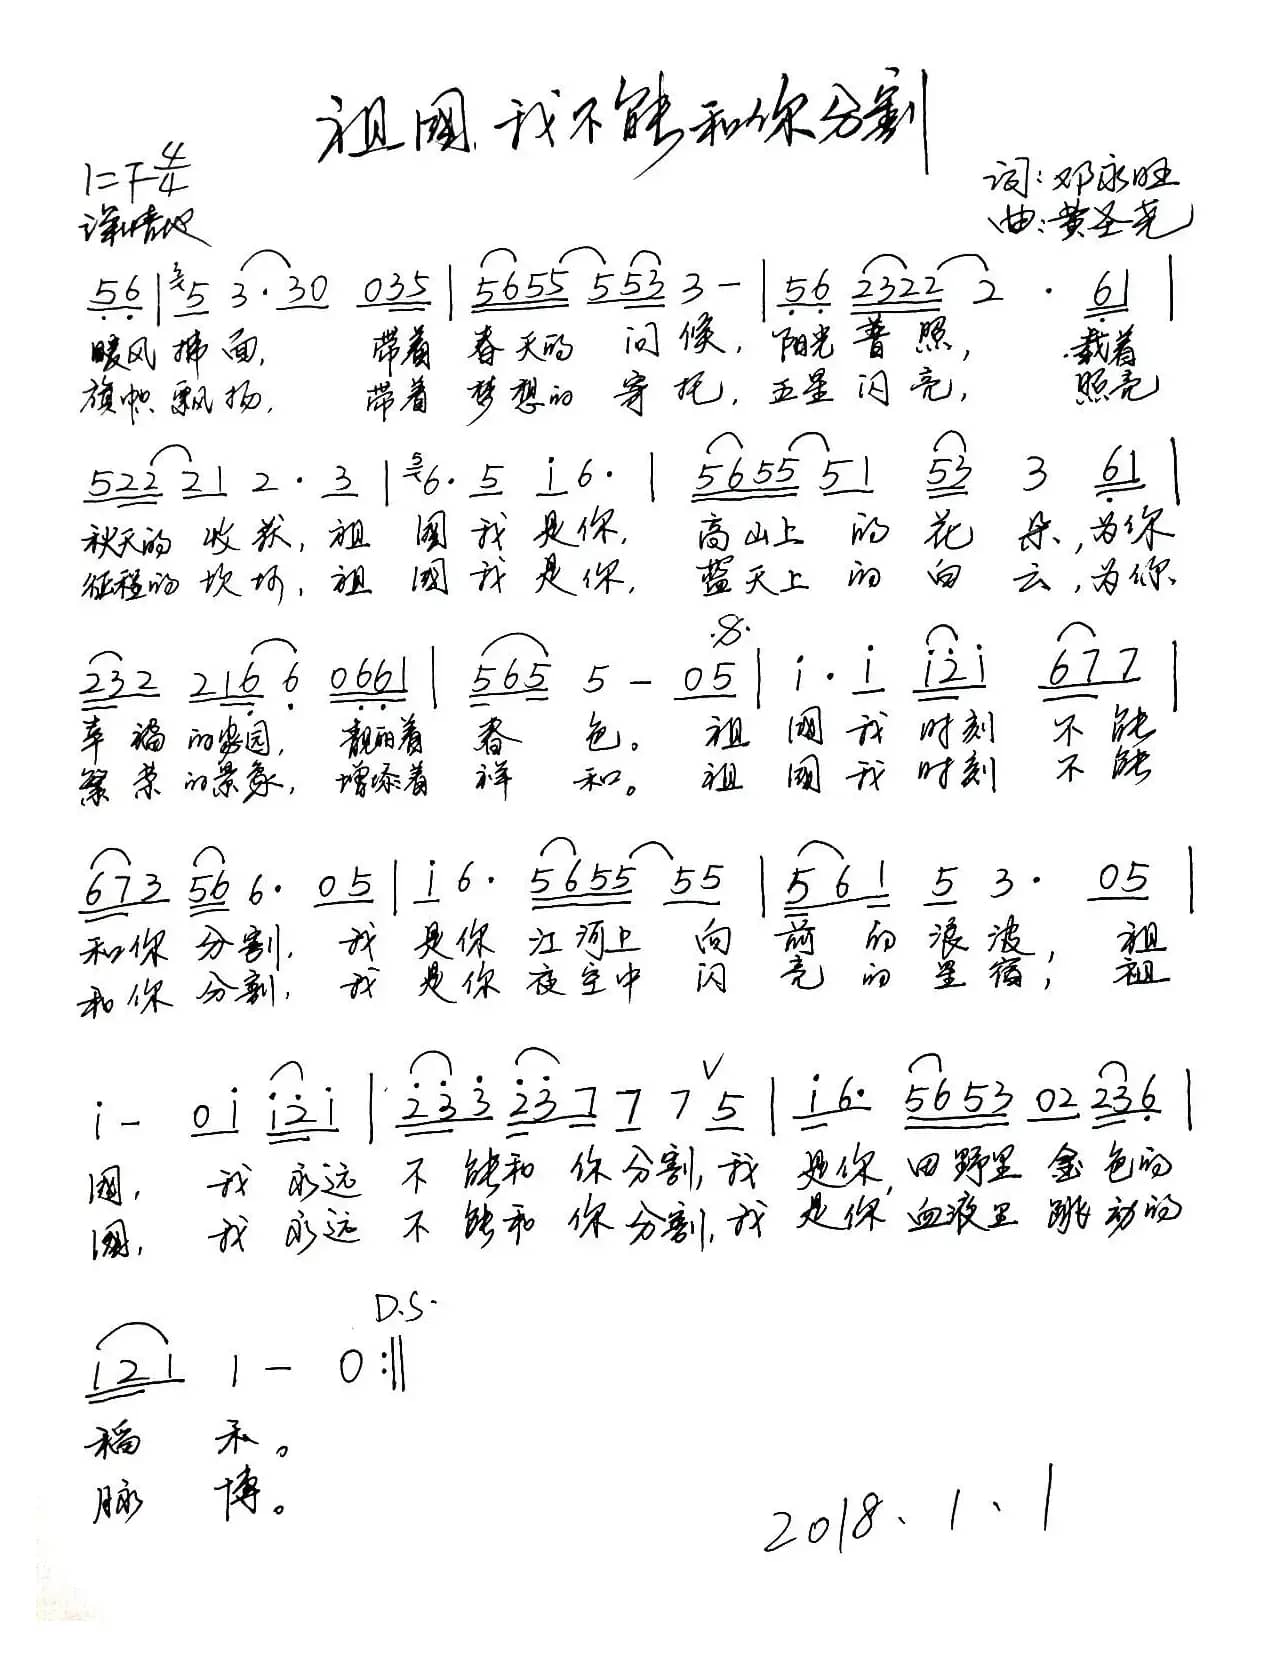 祖國,我不能和你分割
1=F 4/4
深情地
词:邓永旺
曲:黄圣尧
56 | 5 3·30 035 | 5655 553 3 - | 56 2322 2 · 61 |
暖风拂面, 带着 春天的 问候, 阳光普照, 载着
旗帜飘扬, 带着 梦想的 寄托, 五星闪亮, 照亮
522 21 2· 3 | 6· 5 i 6· | 5655 51 53 3 61 |
秋天的 收获, 祖 國我 是你, 高山上 的 花 朵, 为你
征程的 坎坷, 祖 國我 是你, 蓝天上 的 白 云, 为你
232 2166 0661 | 565 5 - 05 | i· i i2i 677 |
幸福的家园, 靓丽着 春 色。 祖 國我 时刻 不能
繁荣的景象, 增添着 祥 和。 祖 國我 时刻 不能
673 56 6· 05 | i 6· 5655 55 | 561 5 3· 05 |
和你 分割, 我 是你 江河上 向 前 的 浪波, 祖
和你 分割, 我 是你 夜空中 闪 亮 的 星宿, 祖
i - 0i i2i | 233 237 7 7 5 | i 6· 5653 02 236 |
國, 我 永远 不能和 你分割, 我 是你, 田野里 金色的
國, 我 永远 不能和 你分割, 我 是你 血液里 跳动的
D.S.
i21 1 - 0 :||
稻 禾。
脉 博。
2018、1、1